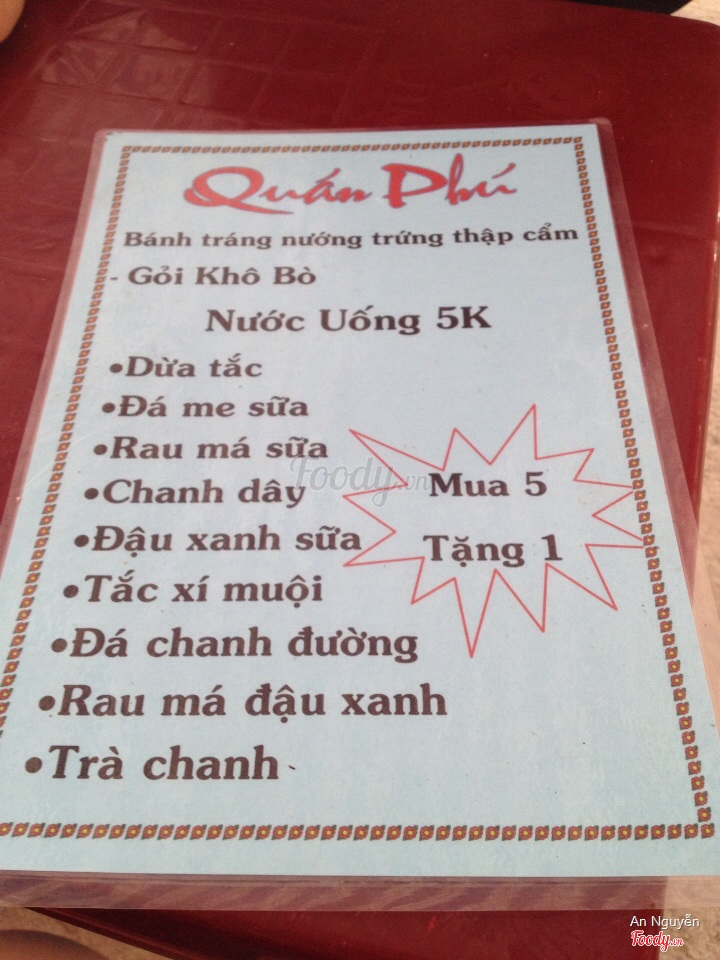 Quán Phú
Bánh tráng nướng trứng thập cẩm
- Gỏi Khô Bò
Nước Uống 5K
•Dừa tắc
•Đá me sữa
•Rau má sữa
•Chanh dây
•Đậu xanh sữa
•Tắc xí muội
•Đá chanh đường
•Rau má đậu xanh
•Trà chanh
Mua 5
Tặng 1
Foody.vn
An Nguyễn
Foody.vn